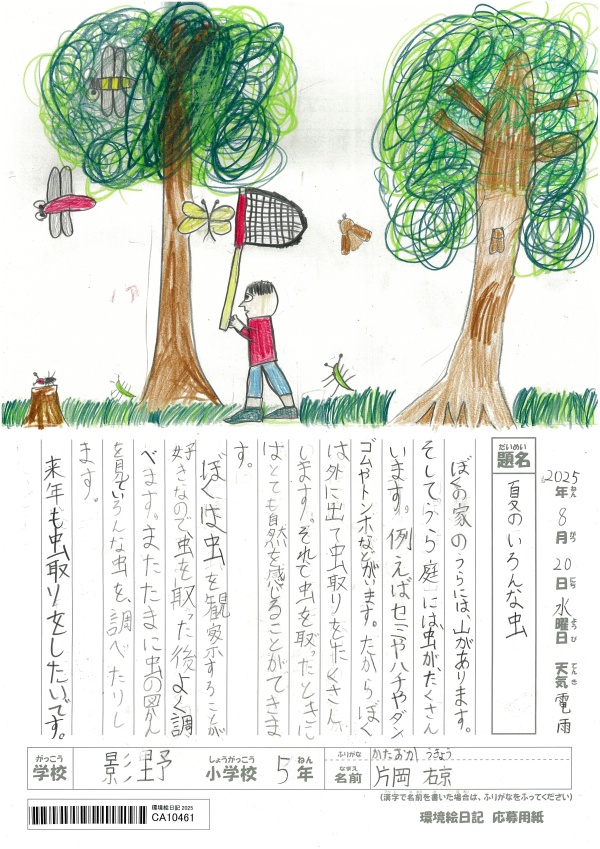 2025年8月20日水曜日 天気雷雨
ねん がつ にち ようび てんき
だいめい
題名
夏のいろんな虫
ぼくの家のうらには、山があります。
そしてうら庭には、虫が、たくさん
います。例えばセミやハチやダン
ゴムやトンボなどがいます。だからぼく
は外に出て虫取りをたくさん
します。それで虫を取ったときに
はとても自然を感じることができま
す。
ぼくは虫を観察することが
好きなので虫を取った後よく調
べます。またたまに虫の図かん
を見ていろんな虫を、調べたりし
ます。
来年も虫取りをしたいです。
がっこう
学校
影野
しょうがっこう
小学校
5年
ねん
ふりがな
かたおか うきょう
なまえ
名前
片岡 右京
(漢字で名前を書いた場合は、ふりがなをふってください)
環境絵日記 2025
CA10461
環境絵日記 応募用紙